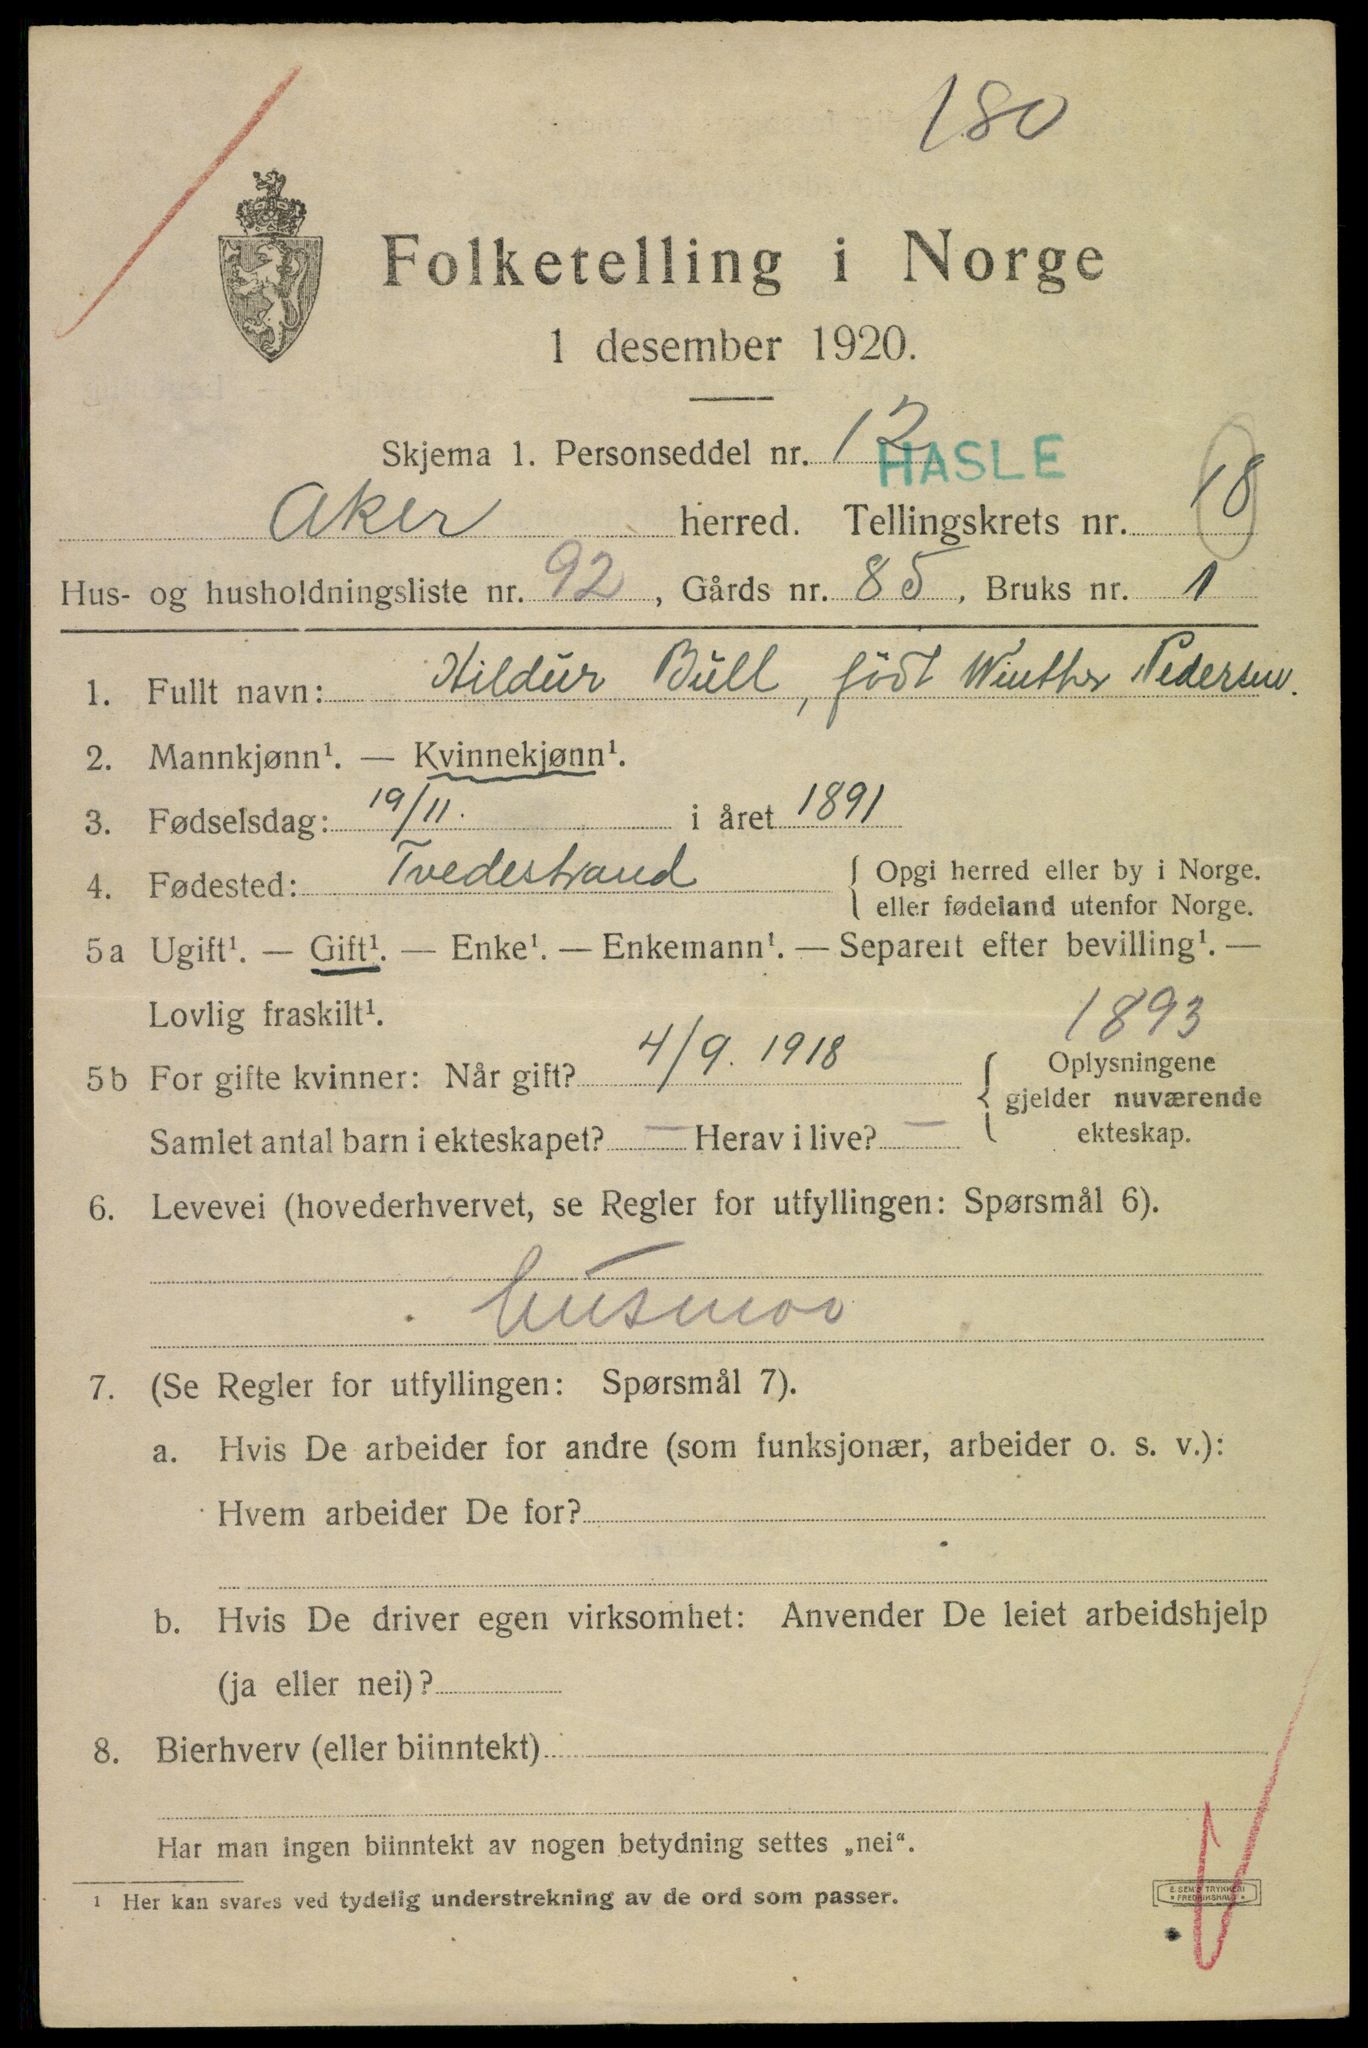 180
Folketelling i Norge
1 desember 1920.
Skjema 1. Personseddel nr. 12
HASLE
Aker herred. Tellingskrets nr. 18
Hus- og husholdningsliste nr. 92, Gårds nr. 85, Bruks nr. 1
1. Fullt navn: Hildur Bull, född Winther Pedersen.
2. Mannkjønn¹. — Kvinnekjønn¹.
3. Fødselsdag: 19/11. i året 1891
4. Fødested: Tvedestrand { Opgi herred eller by i Norge.
eller fødeland utenfor Norge.
5a Ugift¹. — Gift¹. — Enke¹. — Enkemann¹. — Separert efter bevilling¹. —
Lovlig fraskilt¹.
1893
5b For gifte kvinner: Når gift? 4/9. 1918 { Oplysningene
gjelder nuværende
ekteskap.
Samlet antal barn i ekteskapet? — Herav i live? —
6. Levevei (hovederhvervet, se Regler for utfyllingen: Spørsmål 6).
husmor
7. (Se Regler for utfyllingen: Spørsmål 7).
a. Hvis De arbeider for andre (som funksjonær, arbeider o. s. v.):
Hvem arbeider De for?
b. Hvis De driver egen virksomhet: Anvender De leiet arbeidshjelp
(ja eller nei)?
8. Bierhverv (eller biinntekt)
Har man ingen biinntekt av nogen betydning settes „nei“.
1 Her kan svares ved tydelig understrekning av de ord som passer.
E. SEM'S TRYKKERI
* FREDRIKSHALD *